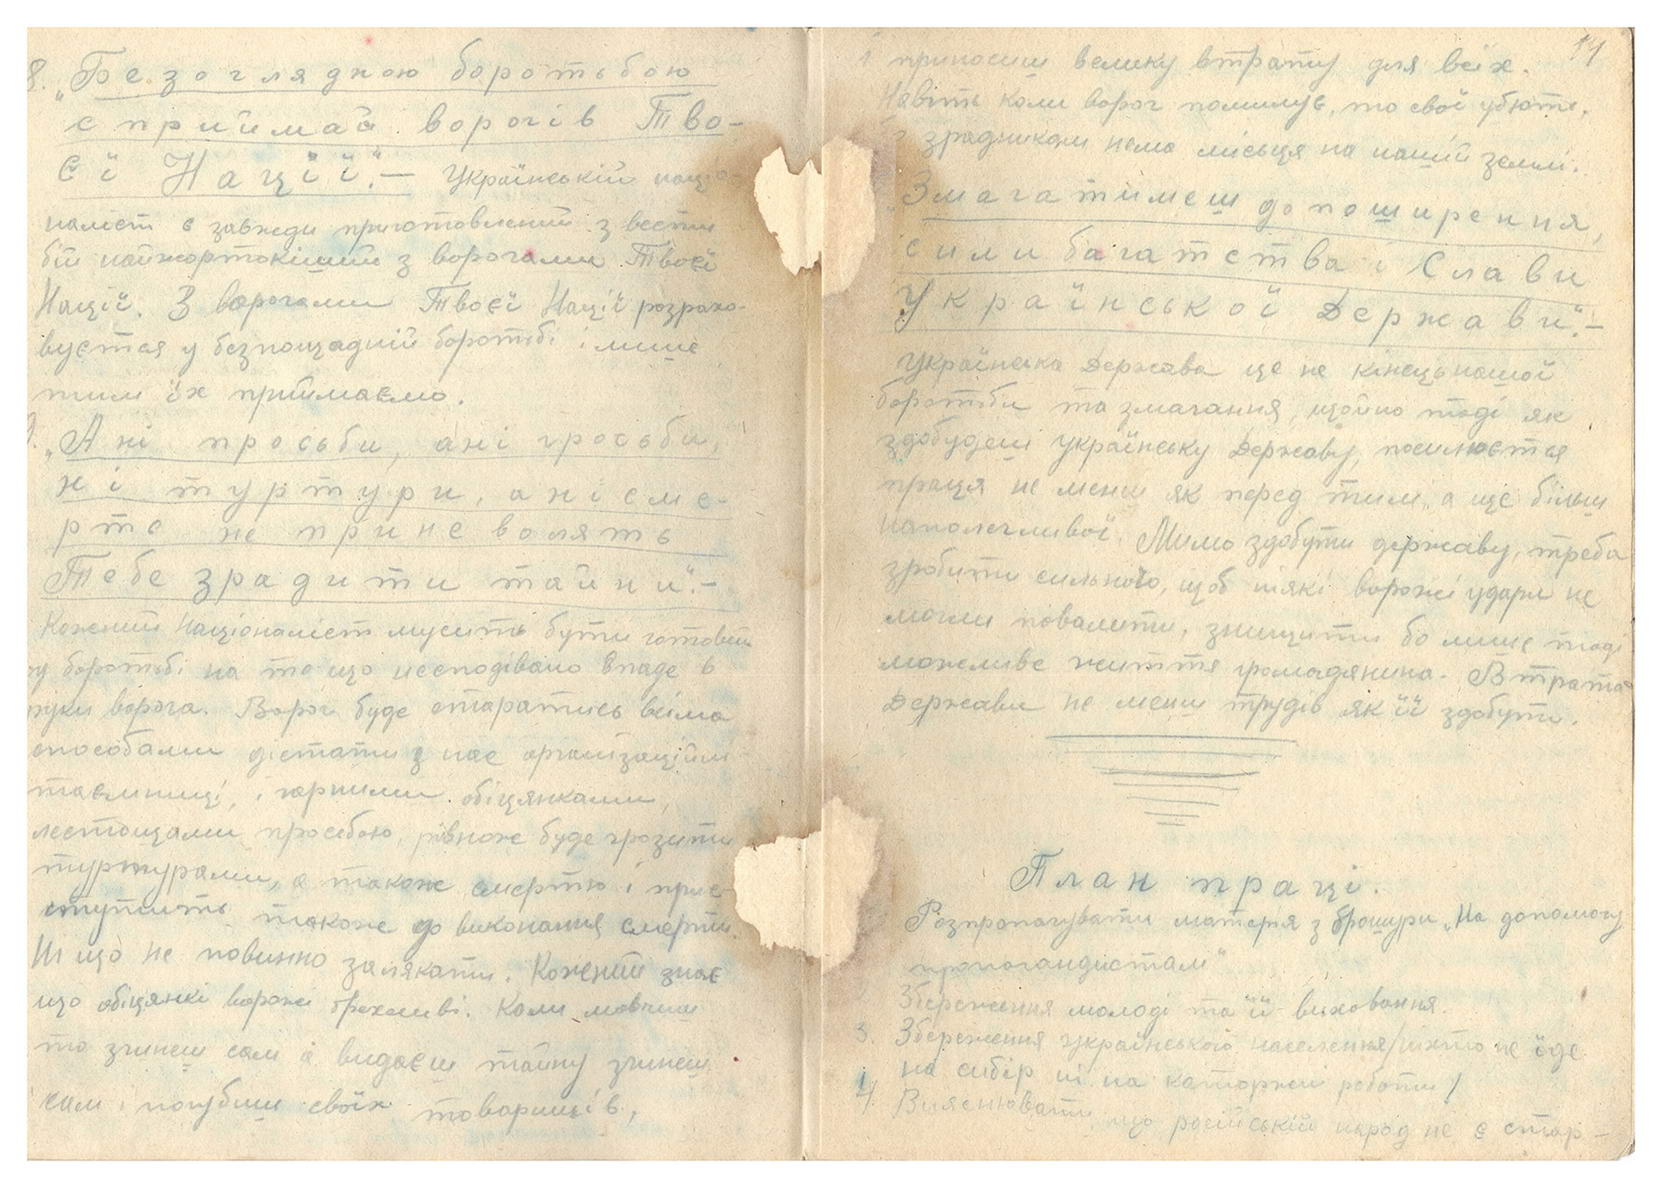 8. „Безоглядною боротьбою
сприймай ворогів Тво-
єї Нації". — Український націо-
наліст є завжди приготовлений звести
бій найжорстокіший з ворогами Твоєї
Нації. З ворогами Твоєї Нації розрахо-
вується у безпощадній боротьбі і лише
тим їх приймаємо.
9. „Ані просьби, ані грозьби,
ні туртури, ані сме-
рть не приневолять
Тебе зрадити тайни". —
Кожний Націоналіст мусить бути готовий
у боротьбі на те що несподівано впаде в
руки ворога. Ворог буде старатись всіма
способами дістати з нас організаційні
таємниці, і гарними обіцянками,
лестощами, просьбою, рівнож буде грозити
туртурами, а також смертю і прис-
тупить також до виконання смерти.
Ні що не повинно залякати. Кожний знає
що обіцянкі ворожі брехливі. Коли мовчиш
то згинеш сам а видаєш тайну згинеш
сам і погубиш своїх товаришів,
14
і приносиш велику втрату для всіх.
Навіть коли ворог помилує, то свої убють,
зрадникам нема місьця на нашій землі.
„Змагатимеш до поширення,
сили багатства і Слави
Української Держави". —
Українська Держава це не кінець нашої
боротьби та змагання, щойно тоді як
здобудеш українську Державу, посилюється
праця не менш як перед тим, а ще більш
наполегливої. Мимо здобути державу, треба
зробити сильною, щоб ніякі ворожі удари не
могли повалити, знищити бо лише тоді
можливе життя громадянина. Втрата
Держави не менш трудів як її здобути.
План праці.
Розпропагувати матерія з брошури „На допомогу
пропогандистам"
Збереження молоді та її виховання.
3. Збереження українського населення /ніхто не їде
на сибір ні на каторжні роботи/
4. Вияснювати що російській народ не є стор-